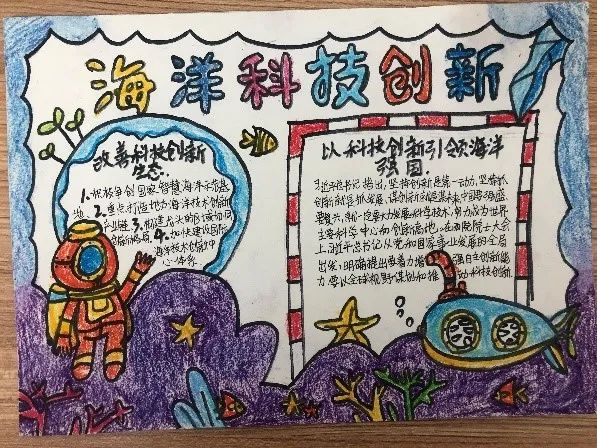 海洋科技创新
改善科技创新
生态.
1.积极争创国家智慧海洋示范基
地. 2.重点打造地方海洋技术创新
产业链 3.制造名头的创建协同
创新格局. 4.加快建设国际
海洋技术创新中
心体系.
以科技创新引领海洋
强国.
习近平书记指出,坚持创新是第一动力,坚持抓
创新就是抓发展,谋创新就是谋未来,中国要强盛
要复兴,就一定要大力发展科学技术,努力成为世界
主要科学中心和创新高地.在两院院士大会
上习近平总书记从党和国家事业发展的全局
出发,明确提出要着力增强自主创新能
力,要以全球视野谋划和推动科技创新